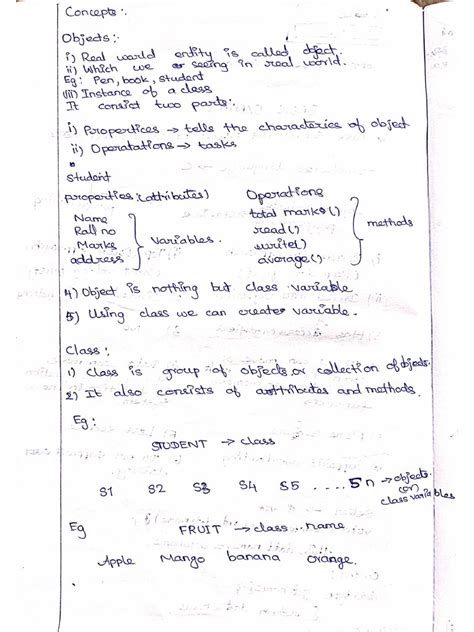 Concepts:
Objects:
i) Real world entity is called object.
ii) Which we or seeing in real world.
Eg: Pen, book, student
iii) Instance of a class
It consist two parts:
i) Propertices → tells the characterics of object
ii) Operatations → tasks
student
properties: (attributes) Operations
Name total marks()
Rall no read()
Marks variables. write() methods
address average()
4) Object is nothing but class variable
5) Using class we can creates variable.
Class:
1) class is group of objects or collection of objects.
2) It also consists of attributes and methods.
Eg:
STUDENT → class
S1 S2 S3 S4 S5 .... Sn → objects
(or)
class variables
Eg FRUIT → class name
Apple Mango banana orange.